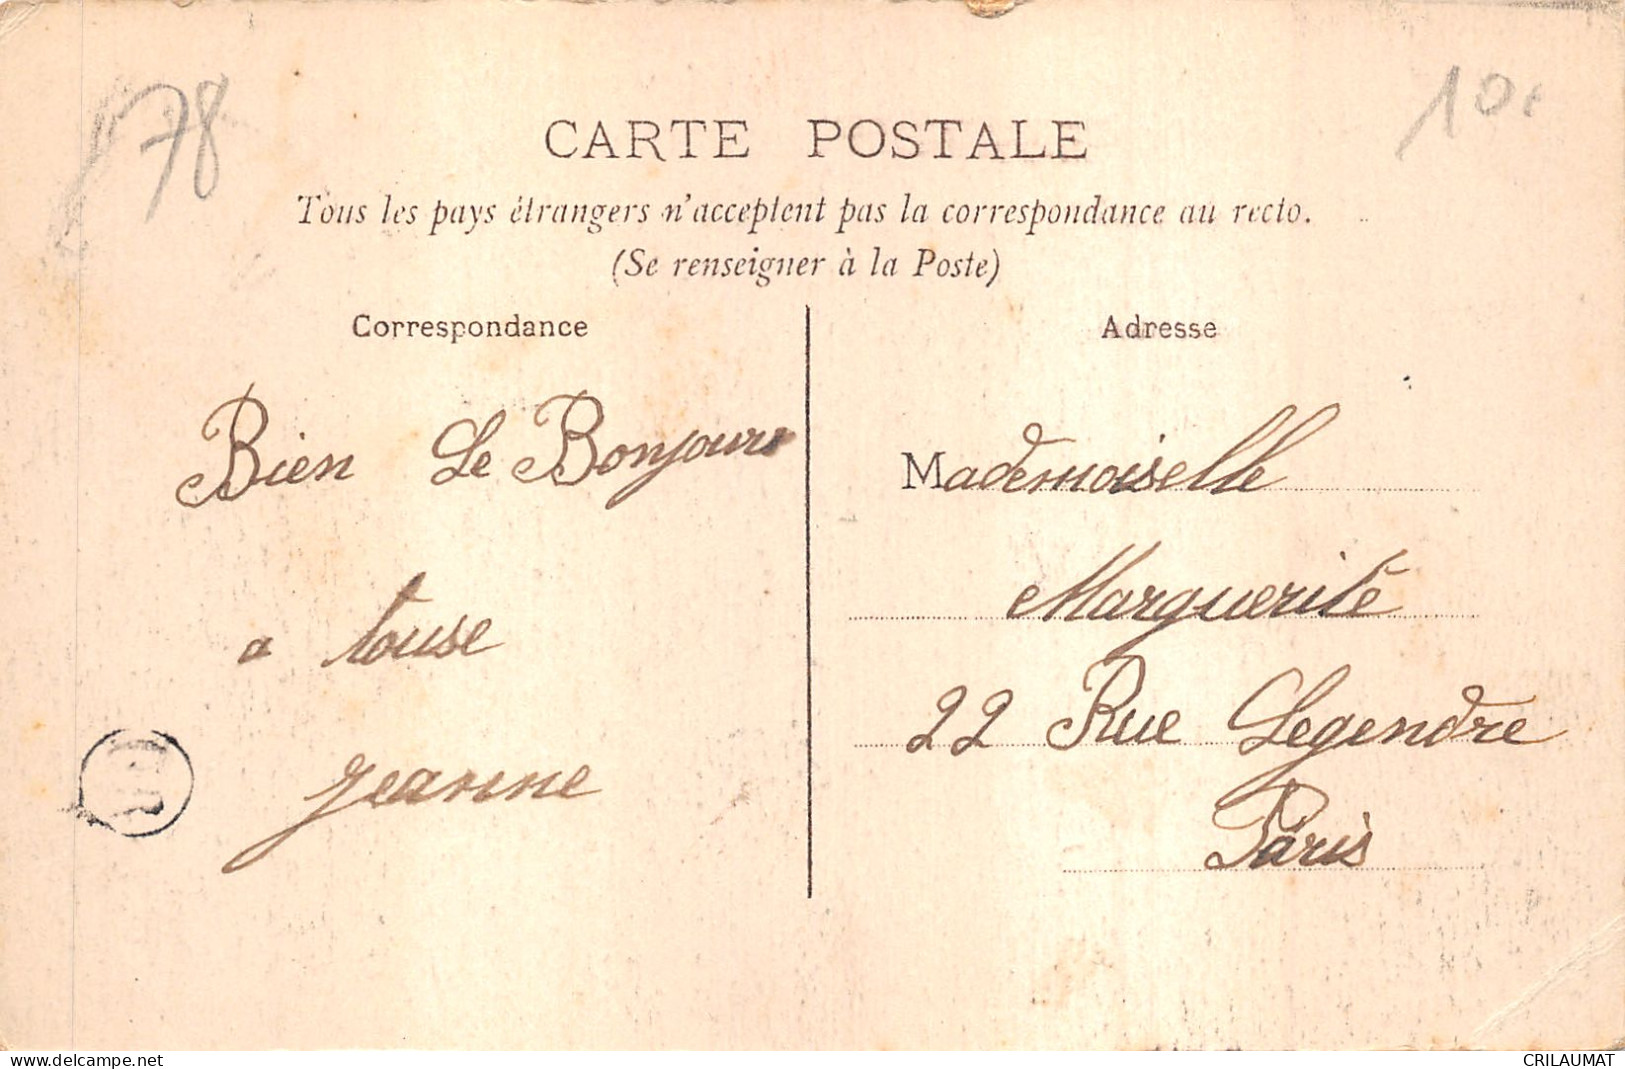 78
10€
CARTE POSTALE
Tous les pays étrangers n'acceptent pas la correspondance au recto.
(Se renseigner à la Poste)
Correspondance
Bien Le Bonjours
a touse
jeanne
Adresse
Mademoiselle
Marguerite
22 Rue Legendre
Paris
www.delcampe.net
CRILAUMAT